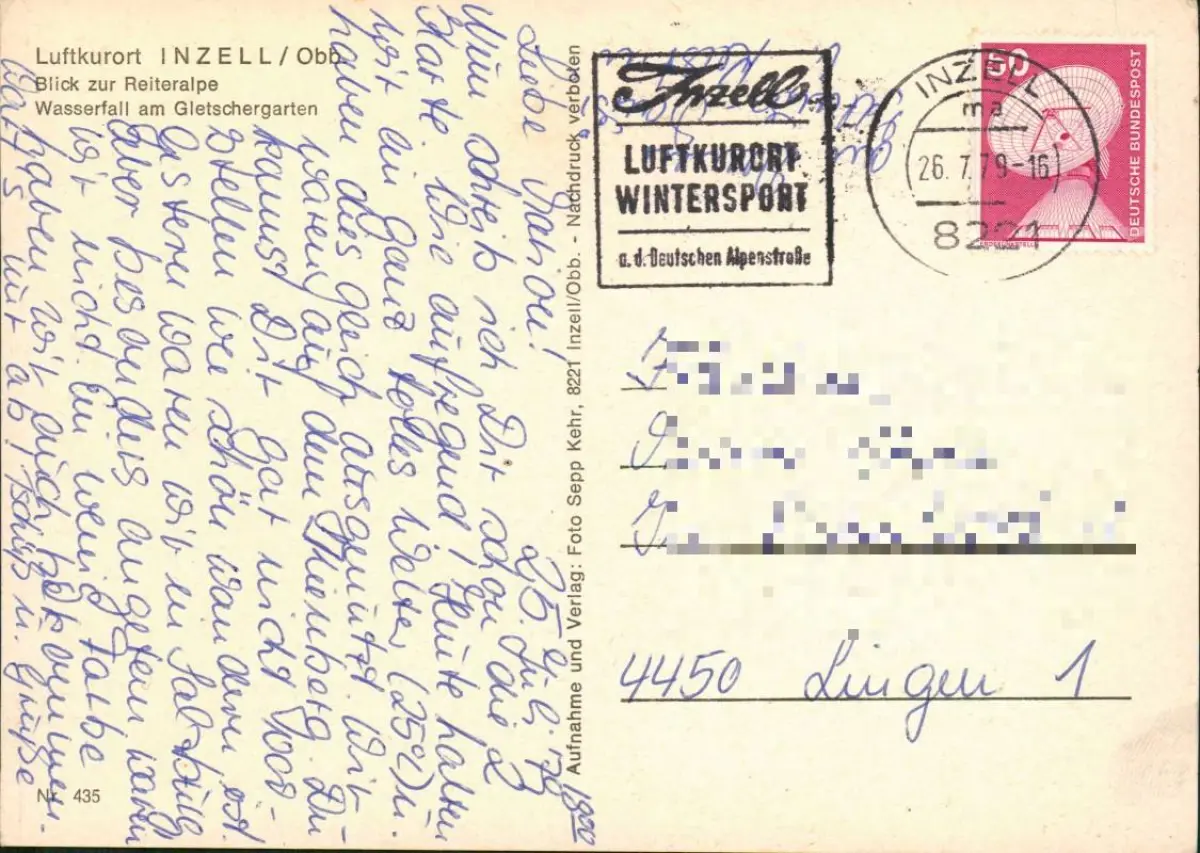 Luftkurort INZELL / Obb.
Blick zur Reiteralpe
Wasserfall am Gletschergarten
Nr. 435
Aufnahme und Verlag: Foto Sepp Kehr, 8221 Inzell/Obb. - Nachdruck verboten
25. Juli '79
18.00
Liebe
Nun schreib ich Dir schon die 2.
Karte. Wie aufregend! Heute hatten
wir ein ganz tolles Wetter (25°) u.
haben das gleich ausgenützt. Wir
waren auf dem Thienberg. Du
kannst Dir gar nicht vor-
stellen wie schön wandern ist.
Gestern waren wir in Salzburg
Aber besonders angetan waren
wir nicht. Ein wenig Farbe
haben wir auch bekommen.
Tschüß u. Grüße
Inzell
LUFTKURORT
WINTERSPORT
a. d. Deutschen Alpenstraße
INZELL
ma
26. 7. 79 - 16
8221
50
DEUTSCHE BUNDESPOST
4450 Lingen 1